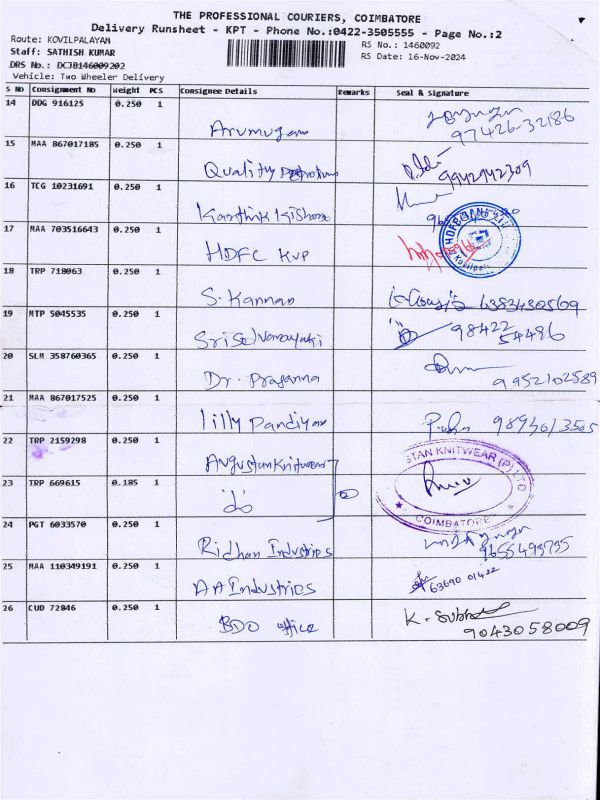 THE PROFESSIONAL COURIERS, COIMBATORE
Delivery Runsheet - KPT - Phone No.:0422-3505555 - Page No.:2
Route: KOVILPALAYAM
RS No.: 1460092
Staff: SATHISH KUMAR
RS Date: 16-Nov-2024
DRS No.: DCJB146009202
Vehicle: Two Wheeler Delivery
S No Consignment No Weight PCS Consignee Details Remarks Seal & Signature
14 DDG 916125 0.250 1 Arumugam 97426-32186
15 MAA 867017185 0.250 1 Quality 9942942309
16 TCG 10231691 0.250 1 Karthik Kishore
17 MAA 703516643 0.250 1 HDFC KVP
18 TRP 718063 0.250 1 S. Kannan 6383430569
19 MTP 5045535 0.250 1 98422 54486
20 SLM 358760365 0.250 1 Dr. Prasanna 9952102589
21 MAA 867017525 0.250 1 Lilly Pandiyan
22 TRP 2159298 0.250 1 Augustan Knitwear
STAN KNITWEAR (P) LTD
COIMBATORE
23 TRP 669615 0.185 1 do
24 PGT 6033570 0.250 1 Ridhan Industries 9655493735
25 MAA 110349191 0.250 1 AA Industries 63690 01422
26 CUD 72846 0.250 1 BDO office K. 9043058009